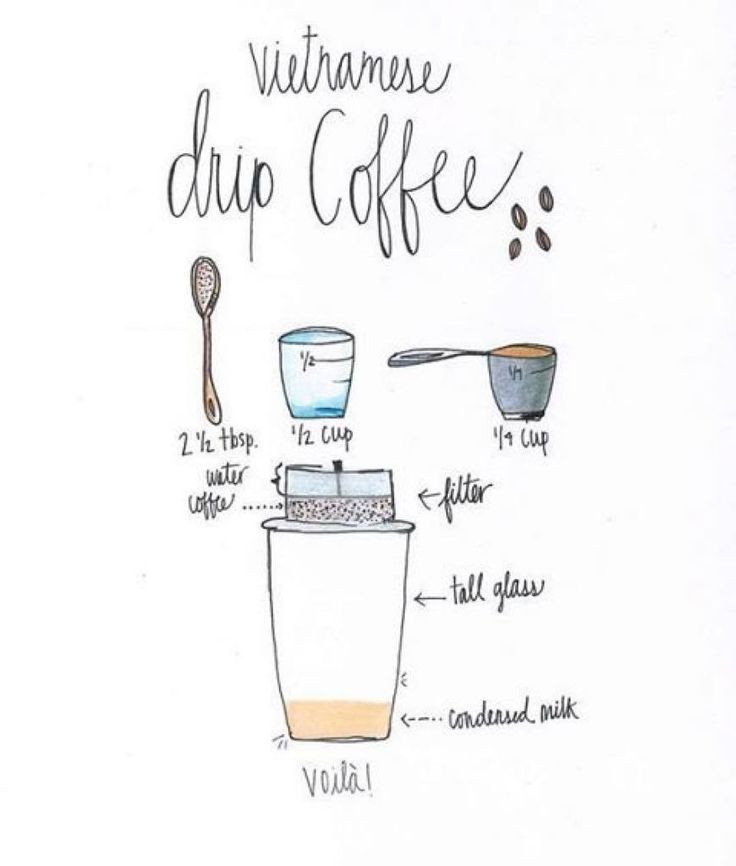 Vietnamese
drip Coffee
1/2
1/4
2 1/2 tbsp.
1/2 cup
1/4 cup
water
coffee
filter
tall glass
condensed milk
Voilà!